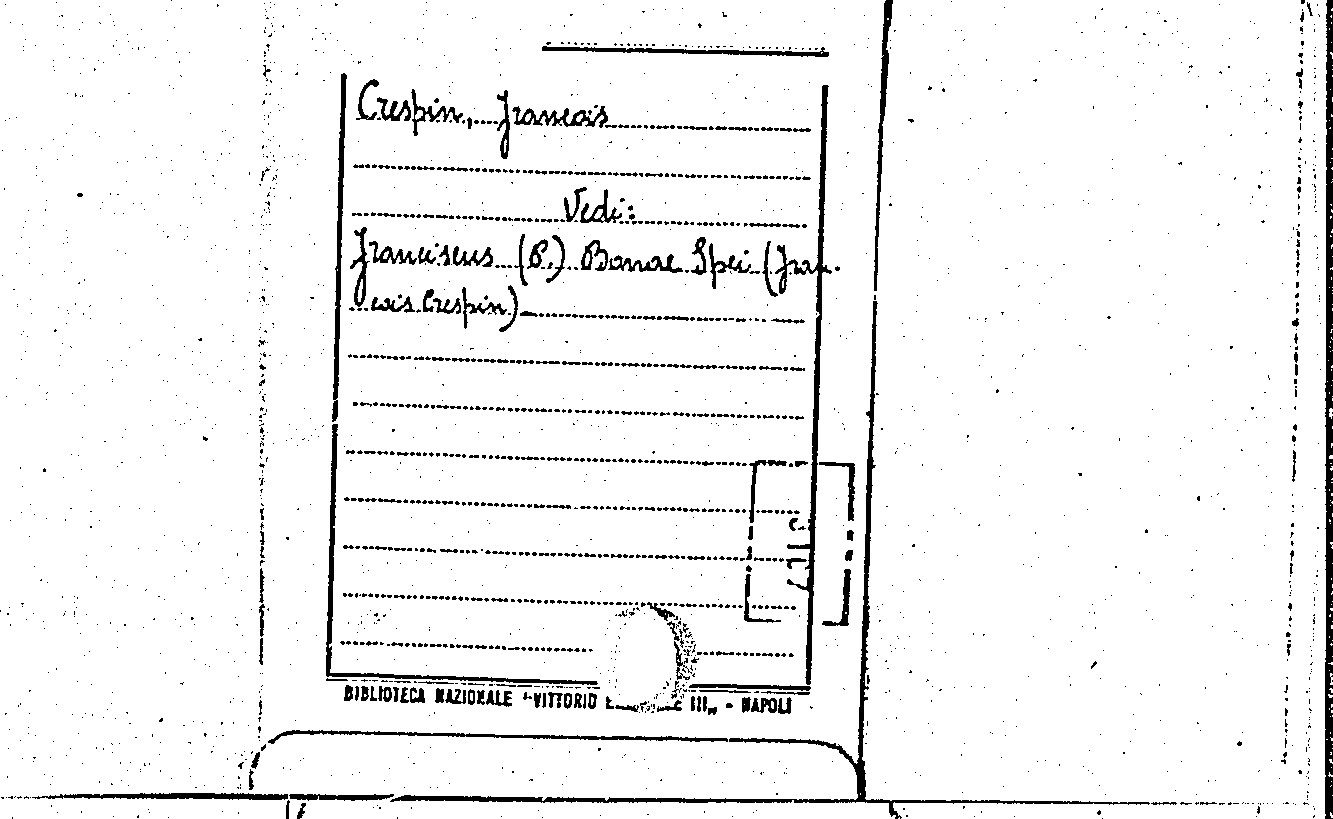 Crespin, Francois
Vedi:
Franciscus (P.) Bonae Spei (Fran-
cois Crespin)
BIBLIOTECA NAZIONALE "VITTORIO III„ - NAPOLI